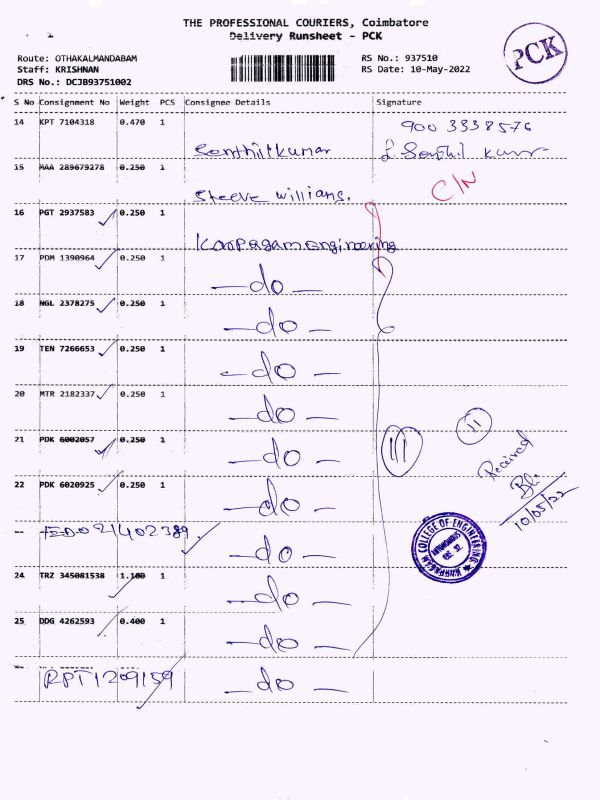 THE PROFESSIONAL COURIERS, Coimbatore
Delivery Runsheet - PCK
PCK
Route: OTHAKALMANDABAM RS No.: 937510
Staff: KRISHNAN RS Date: 10-May-2022
DRS No.: DCJB93751002
S No Consignment No Weight PCS Consignee Details Signature
14 KPT 7104318 0.470 1 Senthilkumar 900 3338576
15 MAA 289679278 0.250 1 Steeve Willians. C/N
16 PGT 2937583 0.250 1 Karpagam engineering
17 PDM 1390964 0.250 1 -do-
18 NGL 2378275 0.250 1 -do-
19 TEN 7266653 0.250 1 -do-
20 MTR 2182337 0.250 1 -do-
21 PDK 6002057 0.250 1 -do-
11
Received
22 PDK 6020925 0.250 1 -do-
10/05/22
-- EDO021402389 -do-
KARPAGAM COLLEGE OF ENGINEERING
AUTONOMOUS
24 TRZ 345081538 1.100 1 -do-
25 DDG 4262593 0.400 1 -do-
-- RPT1209159 -do-